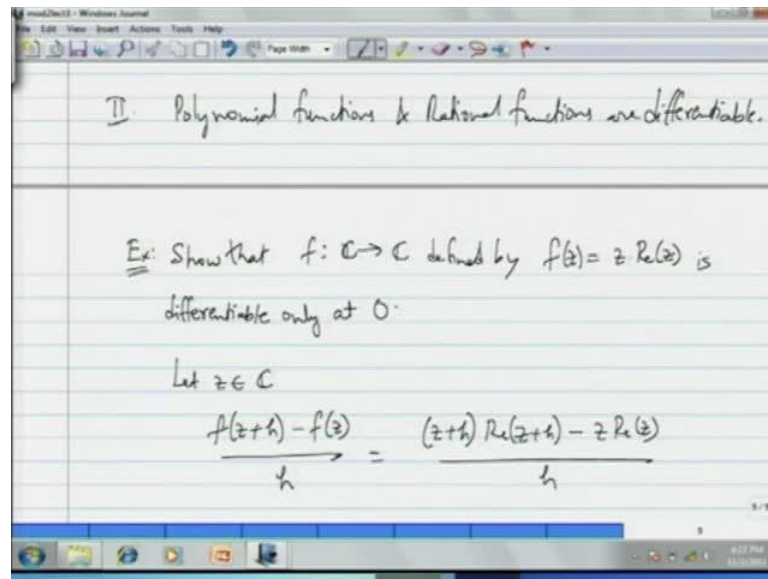 mod2lec13 - Windows Journal
Edit View Insert Actions Tools Help
Page Width
II. Polynomial functions & Rational functions are differentiable.
Ex: Show that f: ℂ → ℂ defined by f(z) = z Re(z) is
differentiable only at 0.
Let z ∈ ℂ
f(z+h) - f(z) / h = (z+h) Re(z+h) - z Re(z) / h
9
4:22 PM